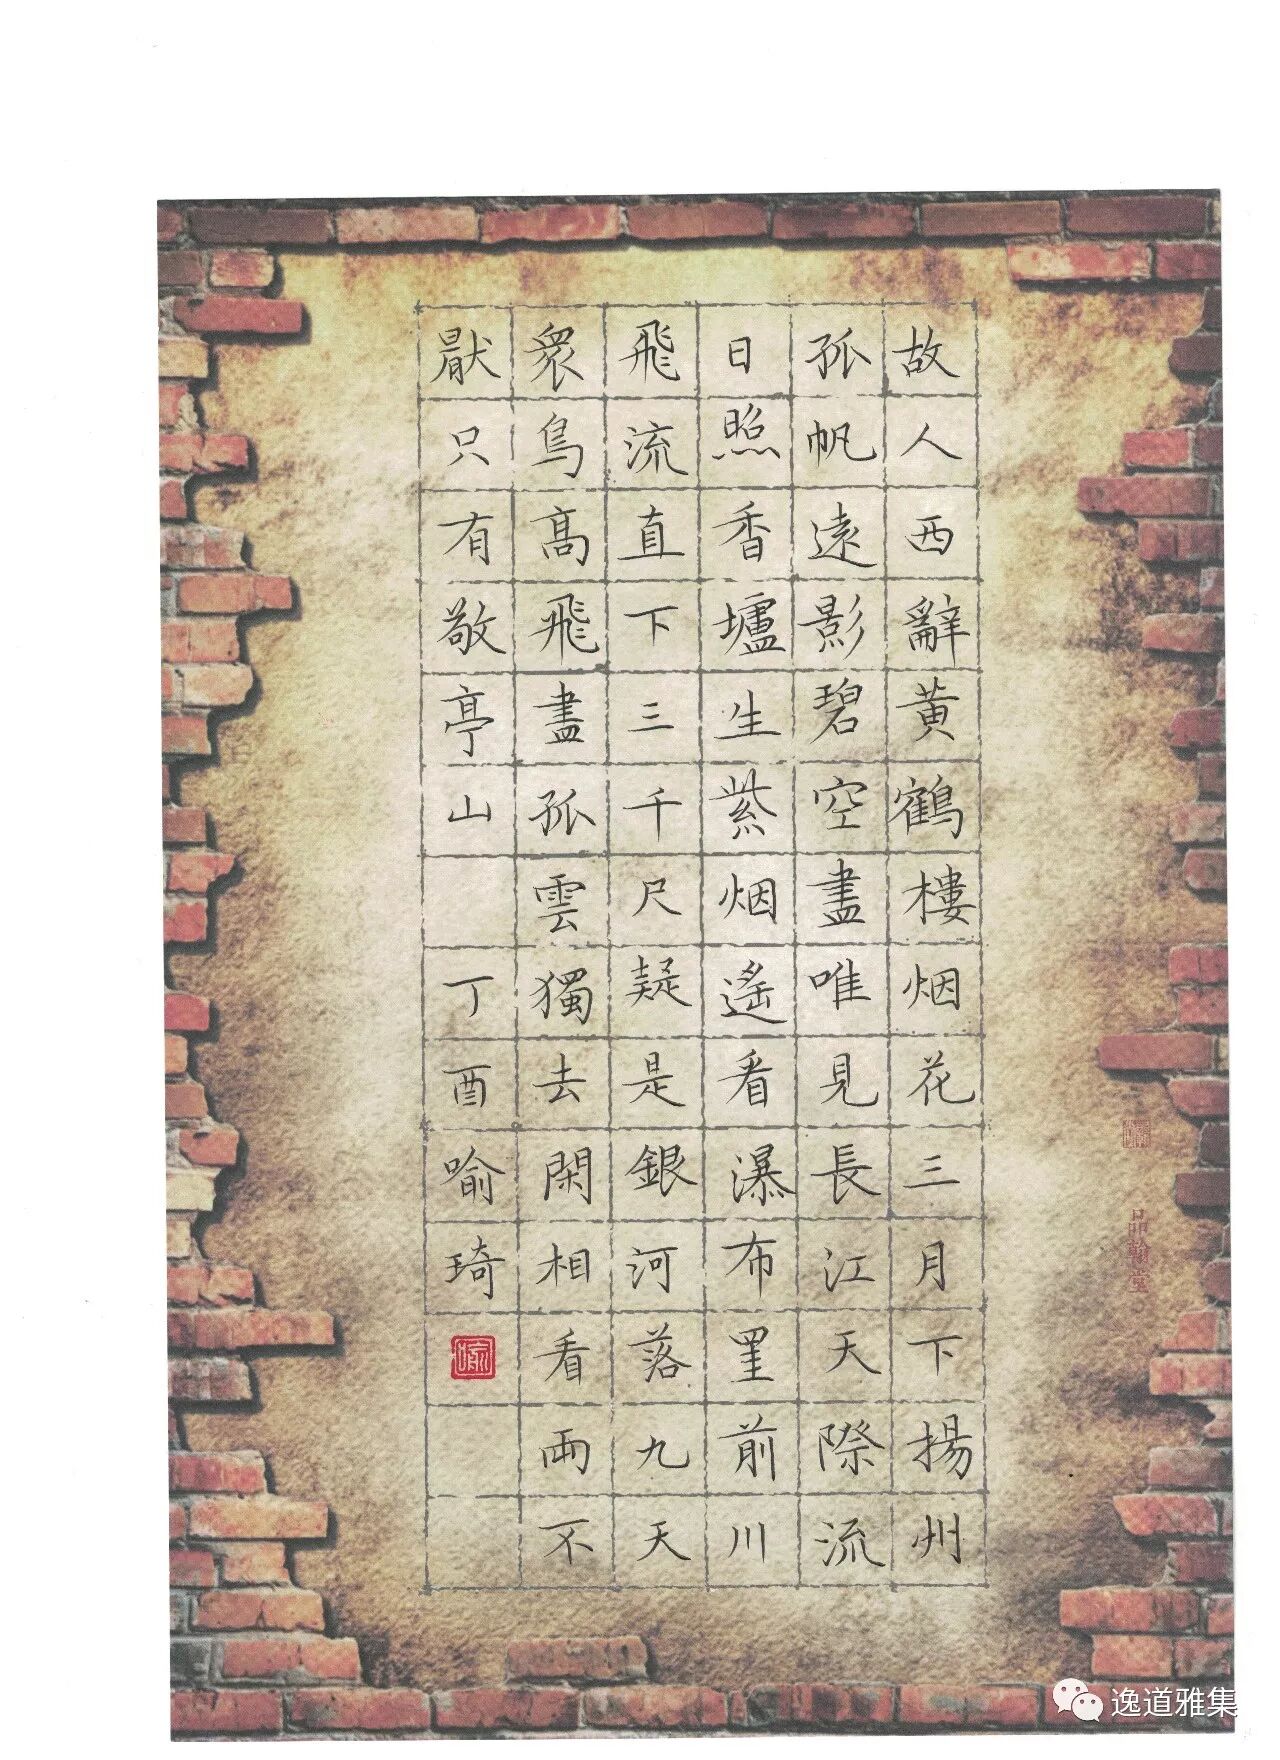 故人西辭黃鶴樓烟花三月下揚州
孤帆遠影碧空盡唯見長江天際流
日照香壚生紫烟遙看瀑布罣前川
飛流直下三千尺疑是銀河落九天
衆鳥高飛盡孤雲獨去閑相看兩不
猒只有敬亭山
丁酉喻琦
喻
品翰堂
逸道雅集